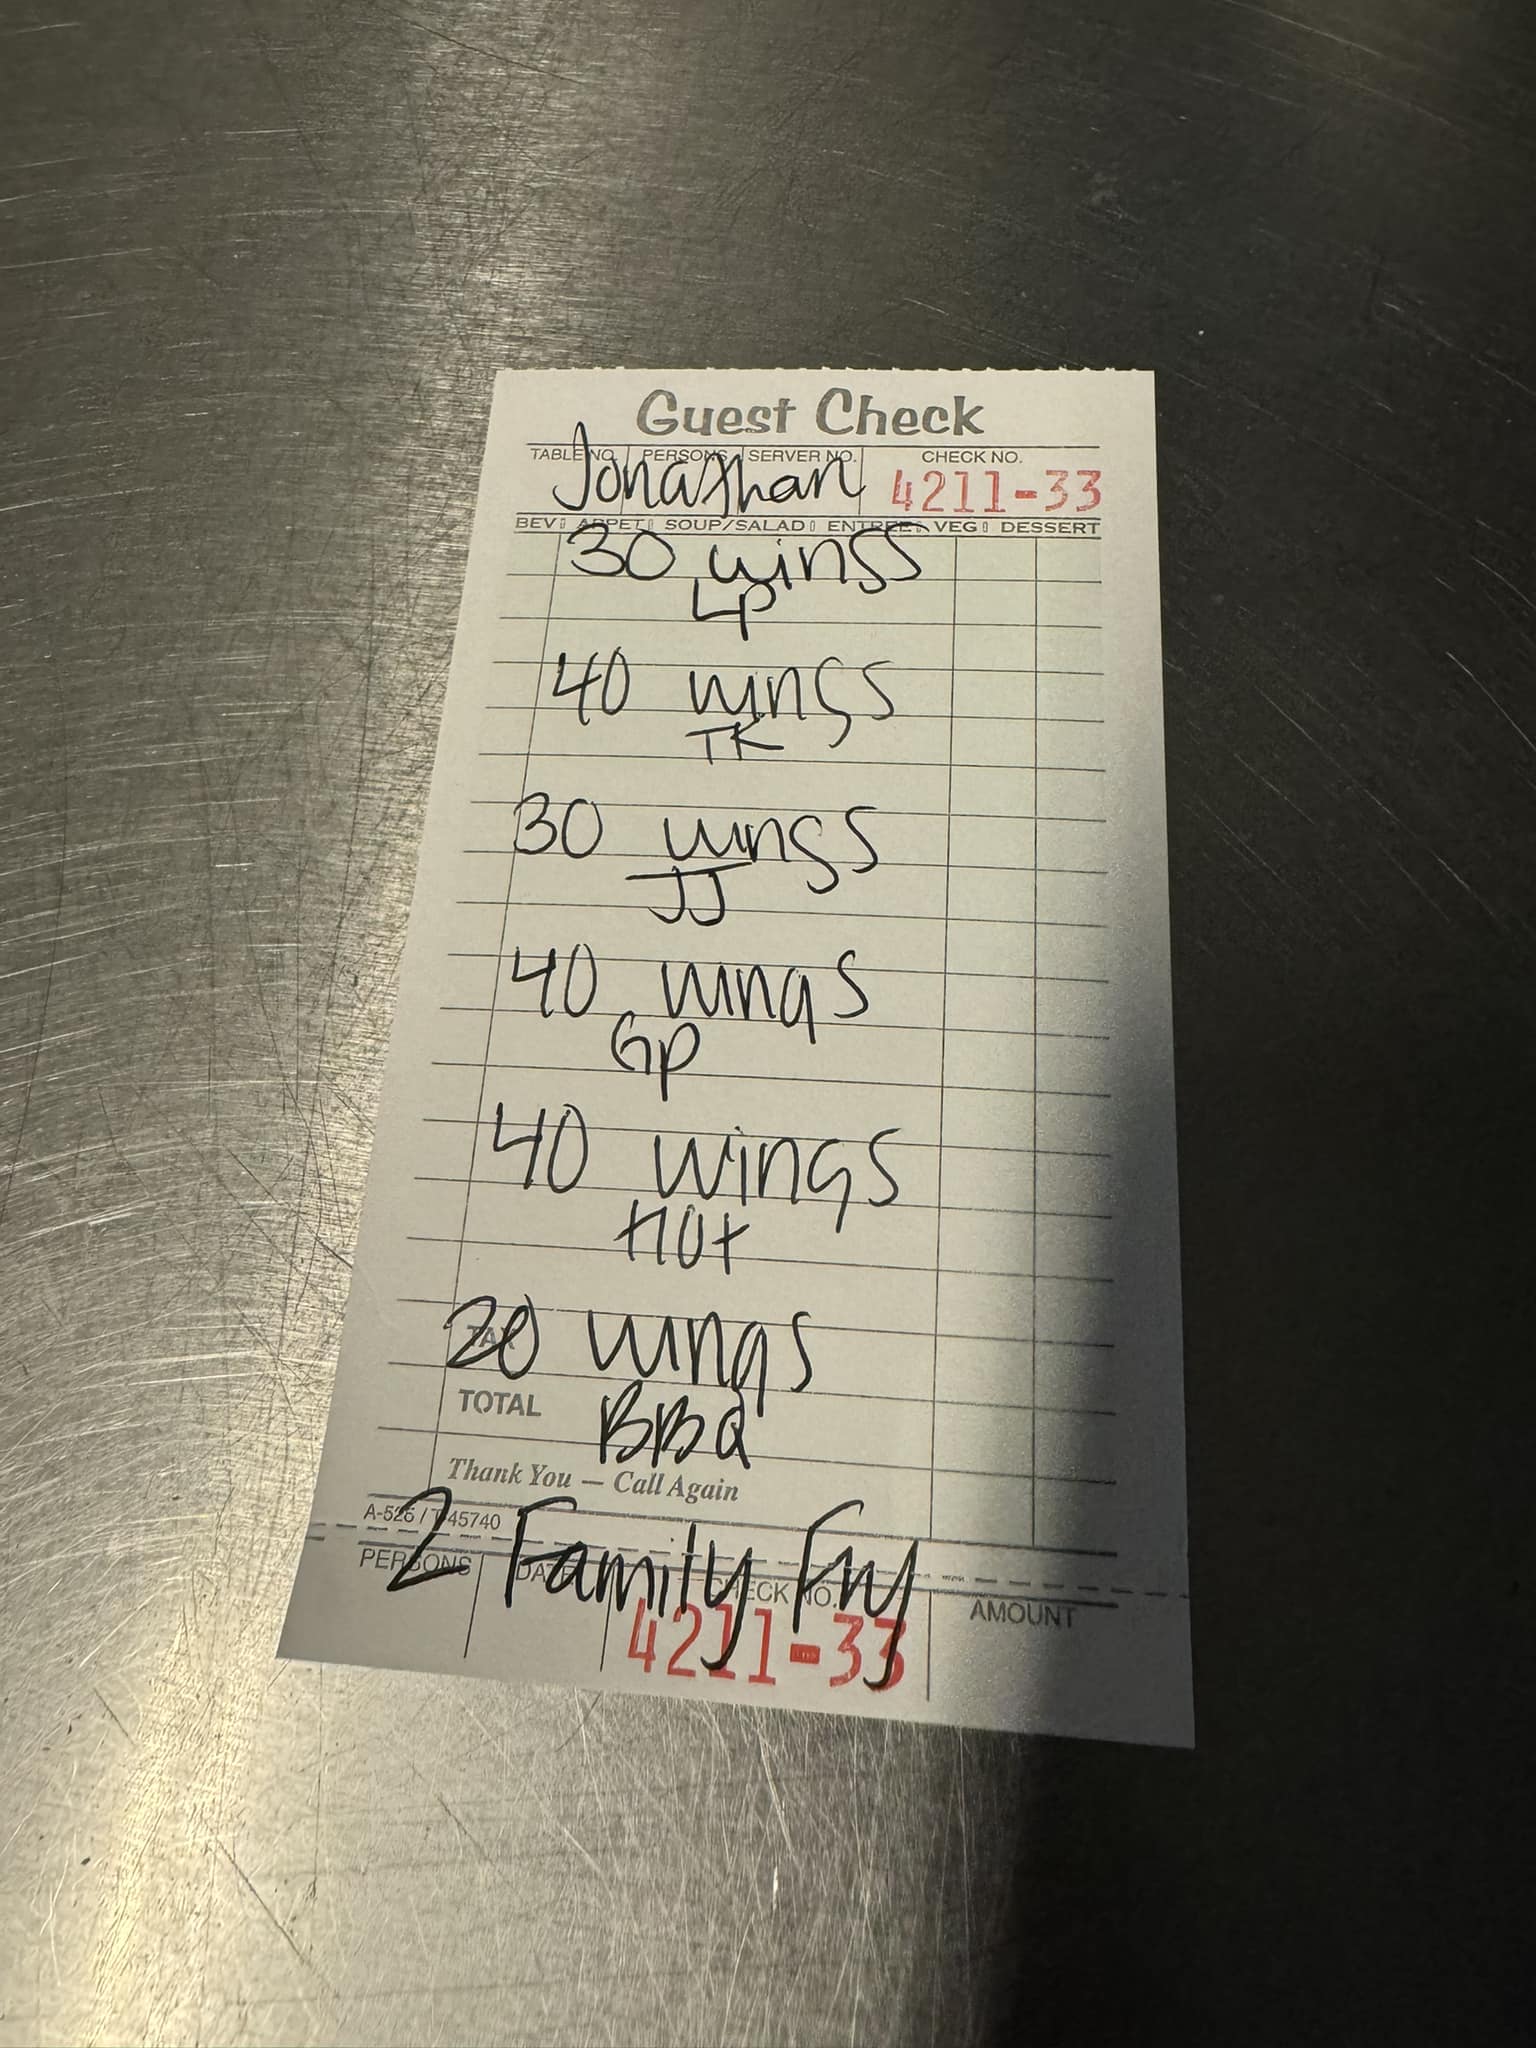 Guest Check
TABLE NO. PERSONS SERVER NO. CHECK NO.
Jonathan 4211-33
BEV APPET SOUP/SALAD ENTREE VEG DESSERT
30 wings
LP
40 wings
TK
30 wings
JJ
40 wings
GP
40 wings
HOT
TAX
20 wings
TOTAL BBQ
Thank You — Call Again
A-526 / T-45740
2 Family Fry
PERSONS DATE CHECK NO. AMOUNT
4211-33